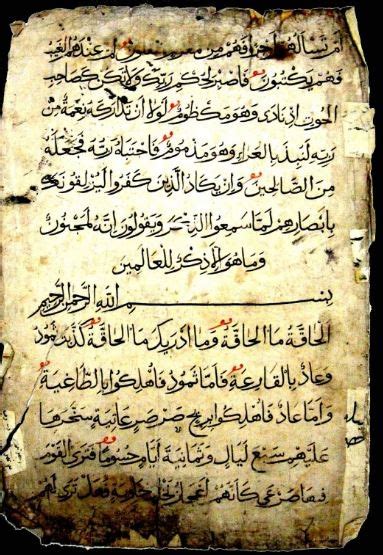 أم تسألهم أجرا فهم من مغرم مثقلون أم عندهم الغيب
فهم يكتبون فاصبر لحكم ربك ولا تكن كصاحب
الحوت إذ نادى وهو مكظوم لولا أن تداركه نعمة من
ربه لنبذ بالعراء وهو مذموم فاجتباه ربه فجعله
من الصالحين وإن يكاد الذين كفروا ليزلقونك
بأبصارهم لما سمعوا الذكر ويقولون إنه لمجنون
وما هو إلا ذكر للعالمين
بسم الله الرحمن الرحيم
الحاقة ما الحاقة وما أدريك ما الحاقة كذبت ثمود
وعاد بالقارعة فأما ثمود فأهلكوا بالطاغية
وأما عاد فأهلكوا بريح صرصر عاتية سخرها
عليهم سبع ليال وثمانية أيام حسوما فترى القوم
فيها صرعى كأنهم أعجاز نخل خاوية فهل ترى لهم